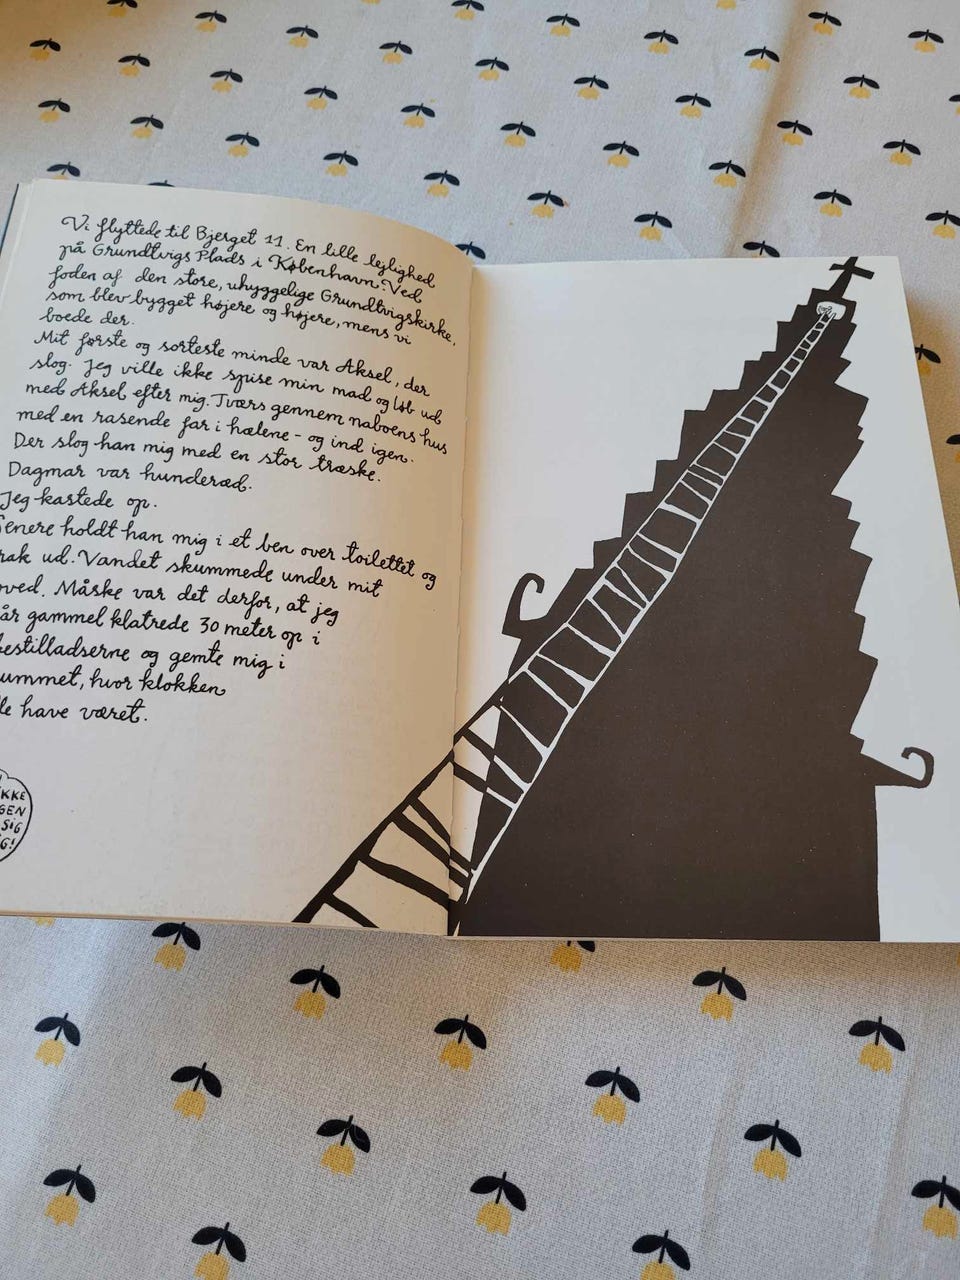 Vi flyttede til Bjerget 11. En lille lejlighed
på Grundtvigs Plads i København. Ved
foden af den store, uhyggelige Grundtvigskirke,
som blev bygget højere og højere, mens vi
boede der.
Mit første og sorteste minde var Aksel, der
slog. Jeg ville ikke spise min mad og løb ud
med Aksel efter mig. Tværs gennem naboens hus
med en rasende far i hælene - og ind igen.
Der slog han mig med en stor træske.
Dagmar var hunderæd.
Jeg kastede op.
Senere holdt han mig i et ben over toilettet og
rak ud. Vandet skummede under mit
oved. Måske var det derfor, at jeg
år gammel klatrede 30 meter op i
estilladserne og gemte mig i
ummet, hvor klokken
le have været.
KKE
GEN
SIG
G!